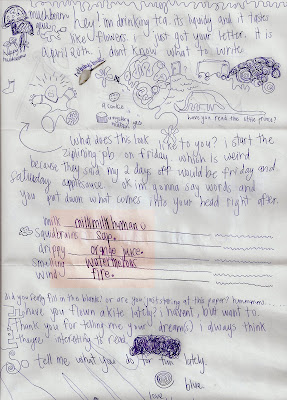 mushroom
hey i'm drinking tea. its loundy and it tastes
like flowers. i just got your letter. it is
april 20th. i dont know what to write.
a cookie
have you read the little prince?
What does this look like to you? i start the
ziplining job on friday, which is weird
because they said my 2 days off would be friday and
saturday. applesauce. ok im gonna say words and
you put down what comes into your head right after.
milk
squadrains sap.
drippy orange juice.
smalling watermelons
windy fire.
did you really fill in the blanks? or are you just staring at this paper? hmmmmm...
have you flown a kite lately? i havent, but want to.
Thank you for telling me your dream(s) i always think
theyre interesting to read.
tell me what you do for fun lately.
blue.
love.